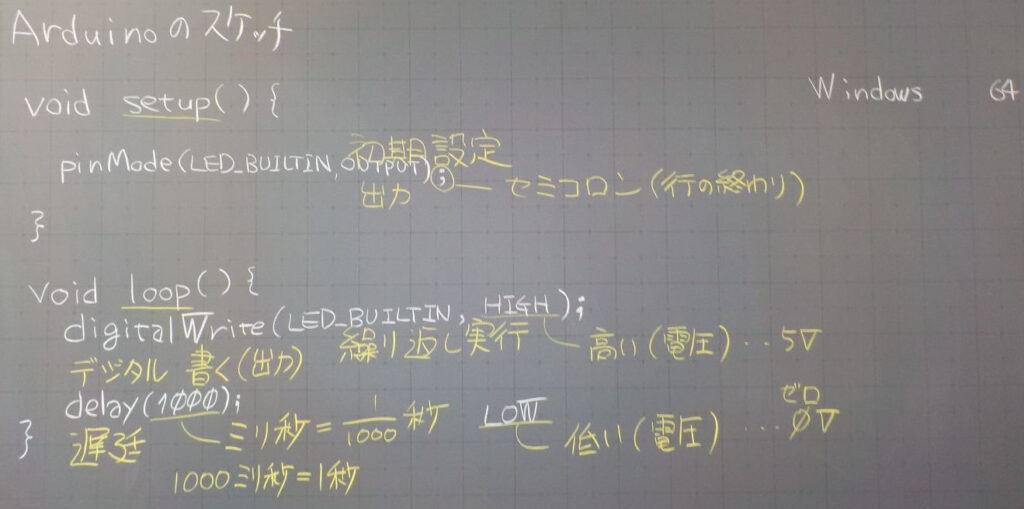 Arduinoのスケッチ
void setup() {
Windows 64
初期設定
pinMode(LED_BUILTIN, OUTPUT);
出力 セミコロン(行の終わり)
}
void loop() {
digitalWrite(LED_BUILTIN, HIGH);
繰り返し実行 高い(電圧)…5V
デジタル 書く(出力)
delay(1000);
ミリ秒=1/1000秒
LOW
ゼロ
低い(電圧)…0V
}
遅延
1000ミリ秒=1秒